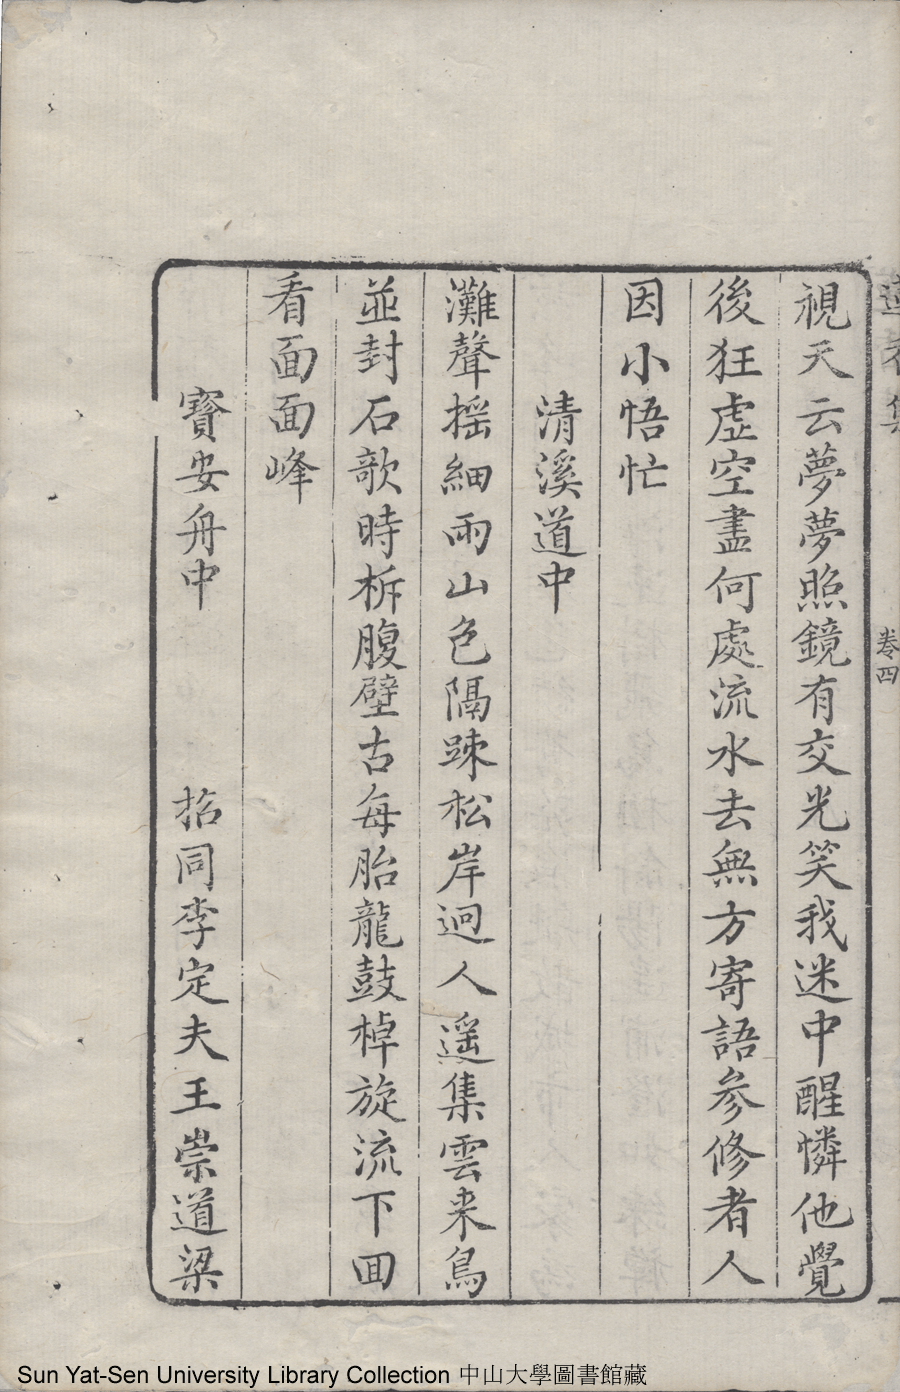 卷四
視天云夢夢照鏡有交光笑我迷中醒憐他覺
後狂虛空盡何處流水去無方寄語參修者人
因小悟忙
清溪道中
灘聲摇細雨山色隔踈松岸迥人遥集雲来鳥
並封石欹時柝腹壁古每胎龍鼓棹旋流下囬
看面面峰
寳安舟中 招同李定夫王崇道梁
Sun Yat-Sen University Library Collection 中山大學圖書館藏